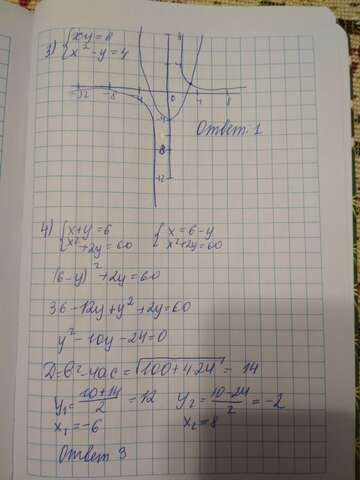 3) { xy = 8
x² - y = 4
-12 -8 0 4 8
-4
-8
-12
Ответ. 1
4) { x+y=6 { x=6-y
x²+2y=60 x²+2y=60
(6-y)²+2y=60
36-12y+y²+2y=60
y²-10y-24=0
D=b²-4ac=√100+4·24=14
y₁=10+14/2=12 y₂=10-24/2=-2
x₁=-6 x₂=8
Ответ 3